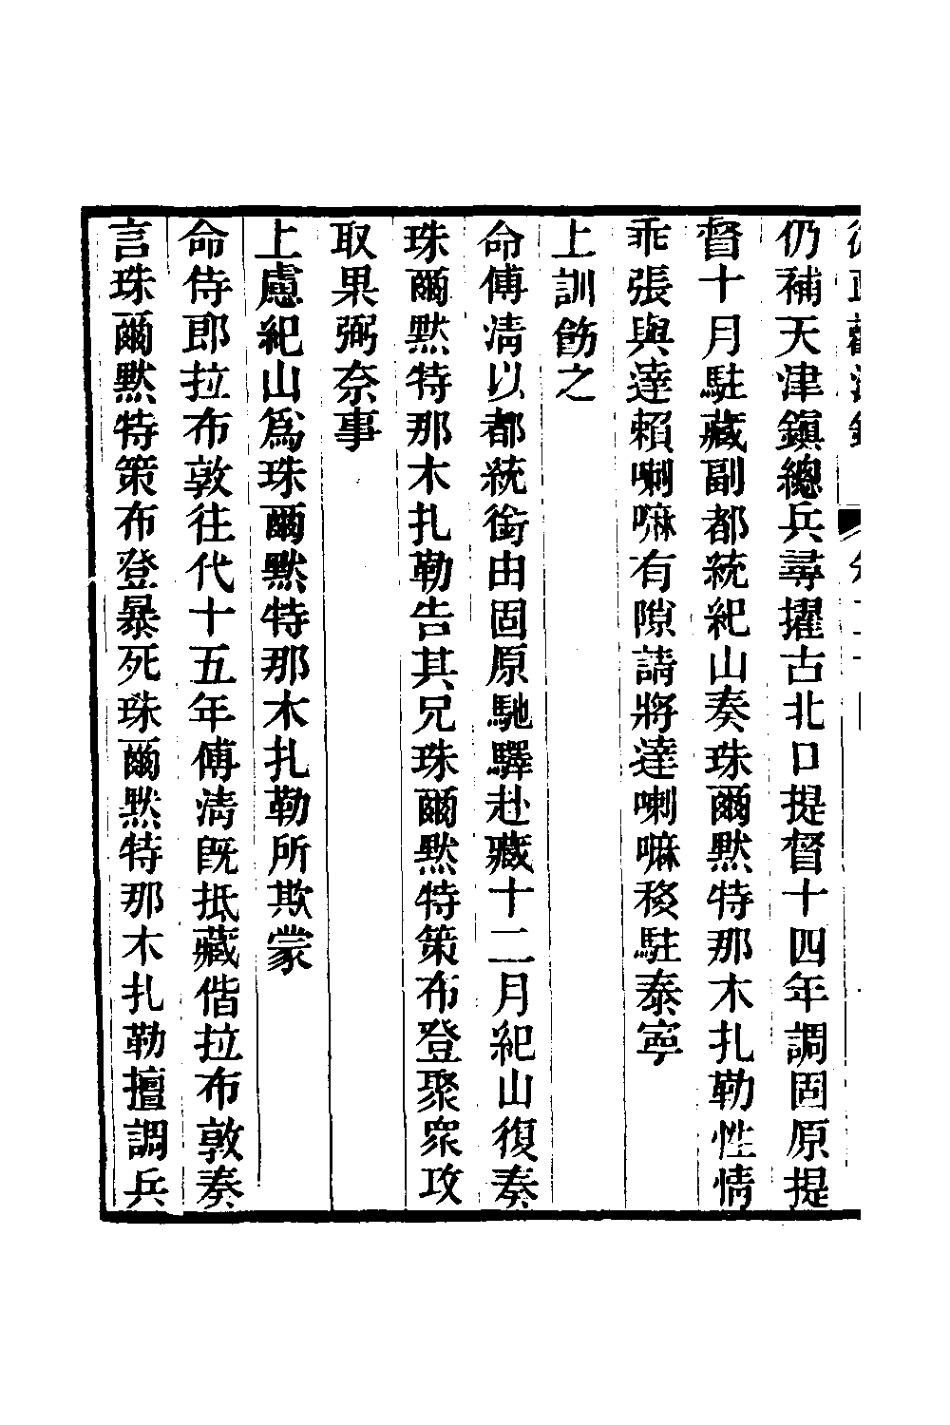 仍補天津鎭總兵尋擢古北口提督十四年調固原提
督十月駐藏副都統紀山奏珠爾黙特那木扎勒性情
乖張與達賴喇嘛有隙請將達喇嘛移駐泰寧
上訓飭之
命傅淸以都統銜由固原馳驛赴藏十二月紀山復奏
珠爾黙特那木扎勒告其兄珠爾黙特策布登聚衆攻
取果弼奈事
上慮紀山爲珠爾黙特那木扎勒所欺蒙
命侍郎拉布敦往代十五年傅淸旣抵藏偕拉布敦奏
言珠爾黙特策布登暴死珠爾黙特那木扎勒擅調兵